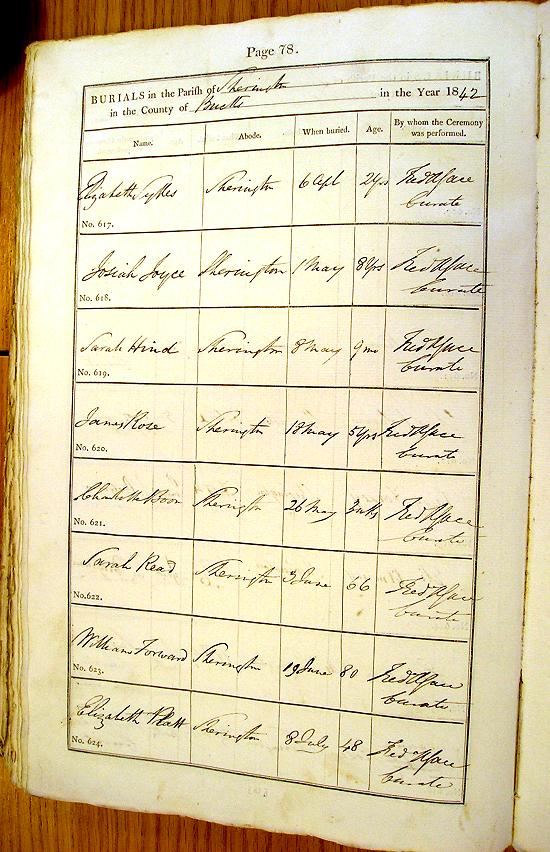 Page 78.
BURIALS in the Parish of Sherington
in the County of Bucks in the Year 1842
Name. Abode. When buried. Age. By whom the Ceremony was performed.
Elizabeth Sykes Sherington 6 Apl 2 yrs Curate
No. 617.
Josiah Joyce Sherington 1 May 8 yrs Curate
No. 618.
Sarah Hind Sherington 8 May 9 mo Curate
No. 619.
James Rose Sherington 18 May 5 yrs Curate
No. 620.
Charlotte Boon Sherington 26 May 3 wks Curate
No. 621.
Sarah Read Sherington 3 June 66 Curate
No. 622.
William Forward Sherington 19 June 80 Curate
No. 623.
Elizabeth Platt Sherington 8 July 48 Curate
No. 624.